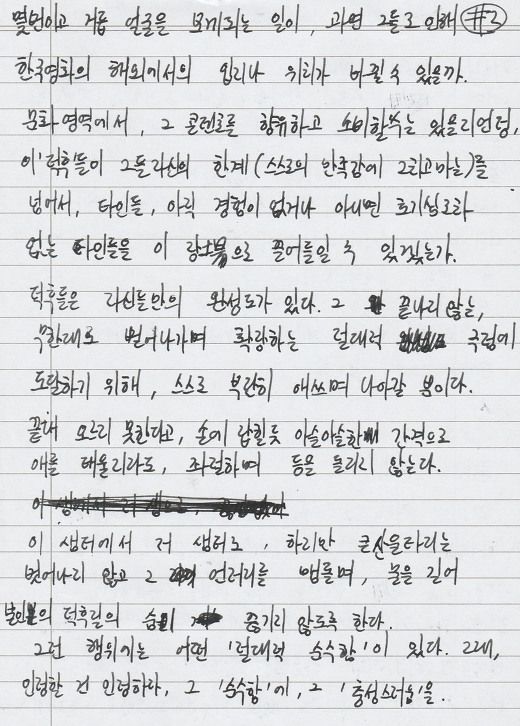 몇번이고 거듭 얼굴을 보게되는 일이, 과연 그들로 인해 #3
한국영화의 해외에서의 입지나 위치가 바뀔 수 있을까.
문화영역에서, 그 콘텐츠를 향유하고 소비할 수는 있을리언정,
이 '덕후'들이 그들자신의 한계(스스로의 만족감에 그치고마는)를
넘어서, 타인들, 아직 경험이 없거나 아니면 호기심조차
없는 타인들을 이 으로 끌어들일 수 있겠는가.
덕후들은 자신들만의 완성도가 있다. 그 끝나지 않는,
무한대로 뻗어나가며 확장하는 절대적 극점에
도달하기 위해, 스스로 부단히 애쓰며 나아갈 뿐이다.
끝내 오르지 못한다고, 손에 잡힐듯 아슬아슬한 간격으로
애를 태울지라도, 좌절하며 등을 돌리지 않는다.
이 샘터에서 저 샘터로, 하지만 큰 울타리는
벗어나지 않고 그 언저리를 맴돌며, 물을 길어
본인의 덕후질의 숨이 죽지 않도록 한다.
그런 행위에는 어떤 '절대적 순수함'이 있다. 그래,
인정할 건 인정하자, 그 '순수함'에, 그 '충성스러움'을.